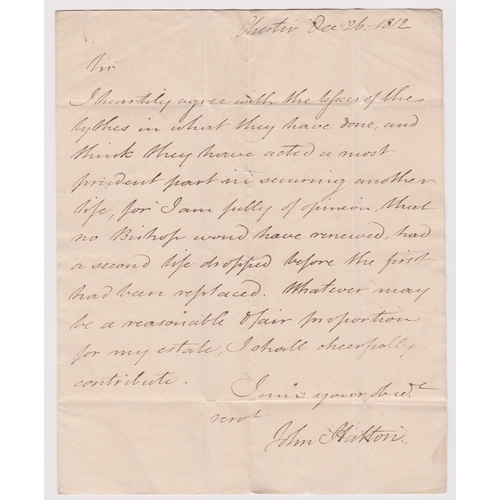 Chester Dec 26. 1812
Sir
I heartily agree with the Lessees of the
tythes in what they have done, and
think they have acted a most
prudent part in securing another
life, for I am fully of opinion, that
no Bishop would have renewed, had
a second life dropped before the first
had been replaced. Whatever may
be a reasonable & fair proportion
for my estate, I shall cheerfully
contribute.
I am your obedt
servt
John Hatton.